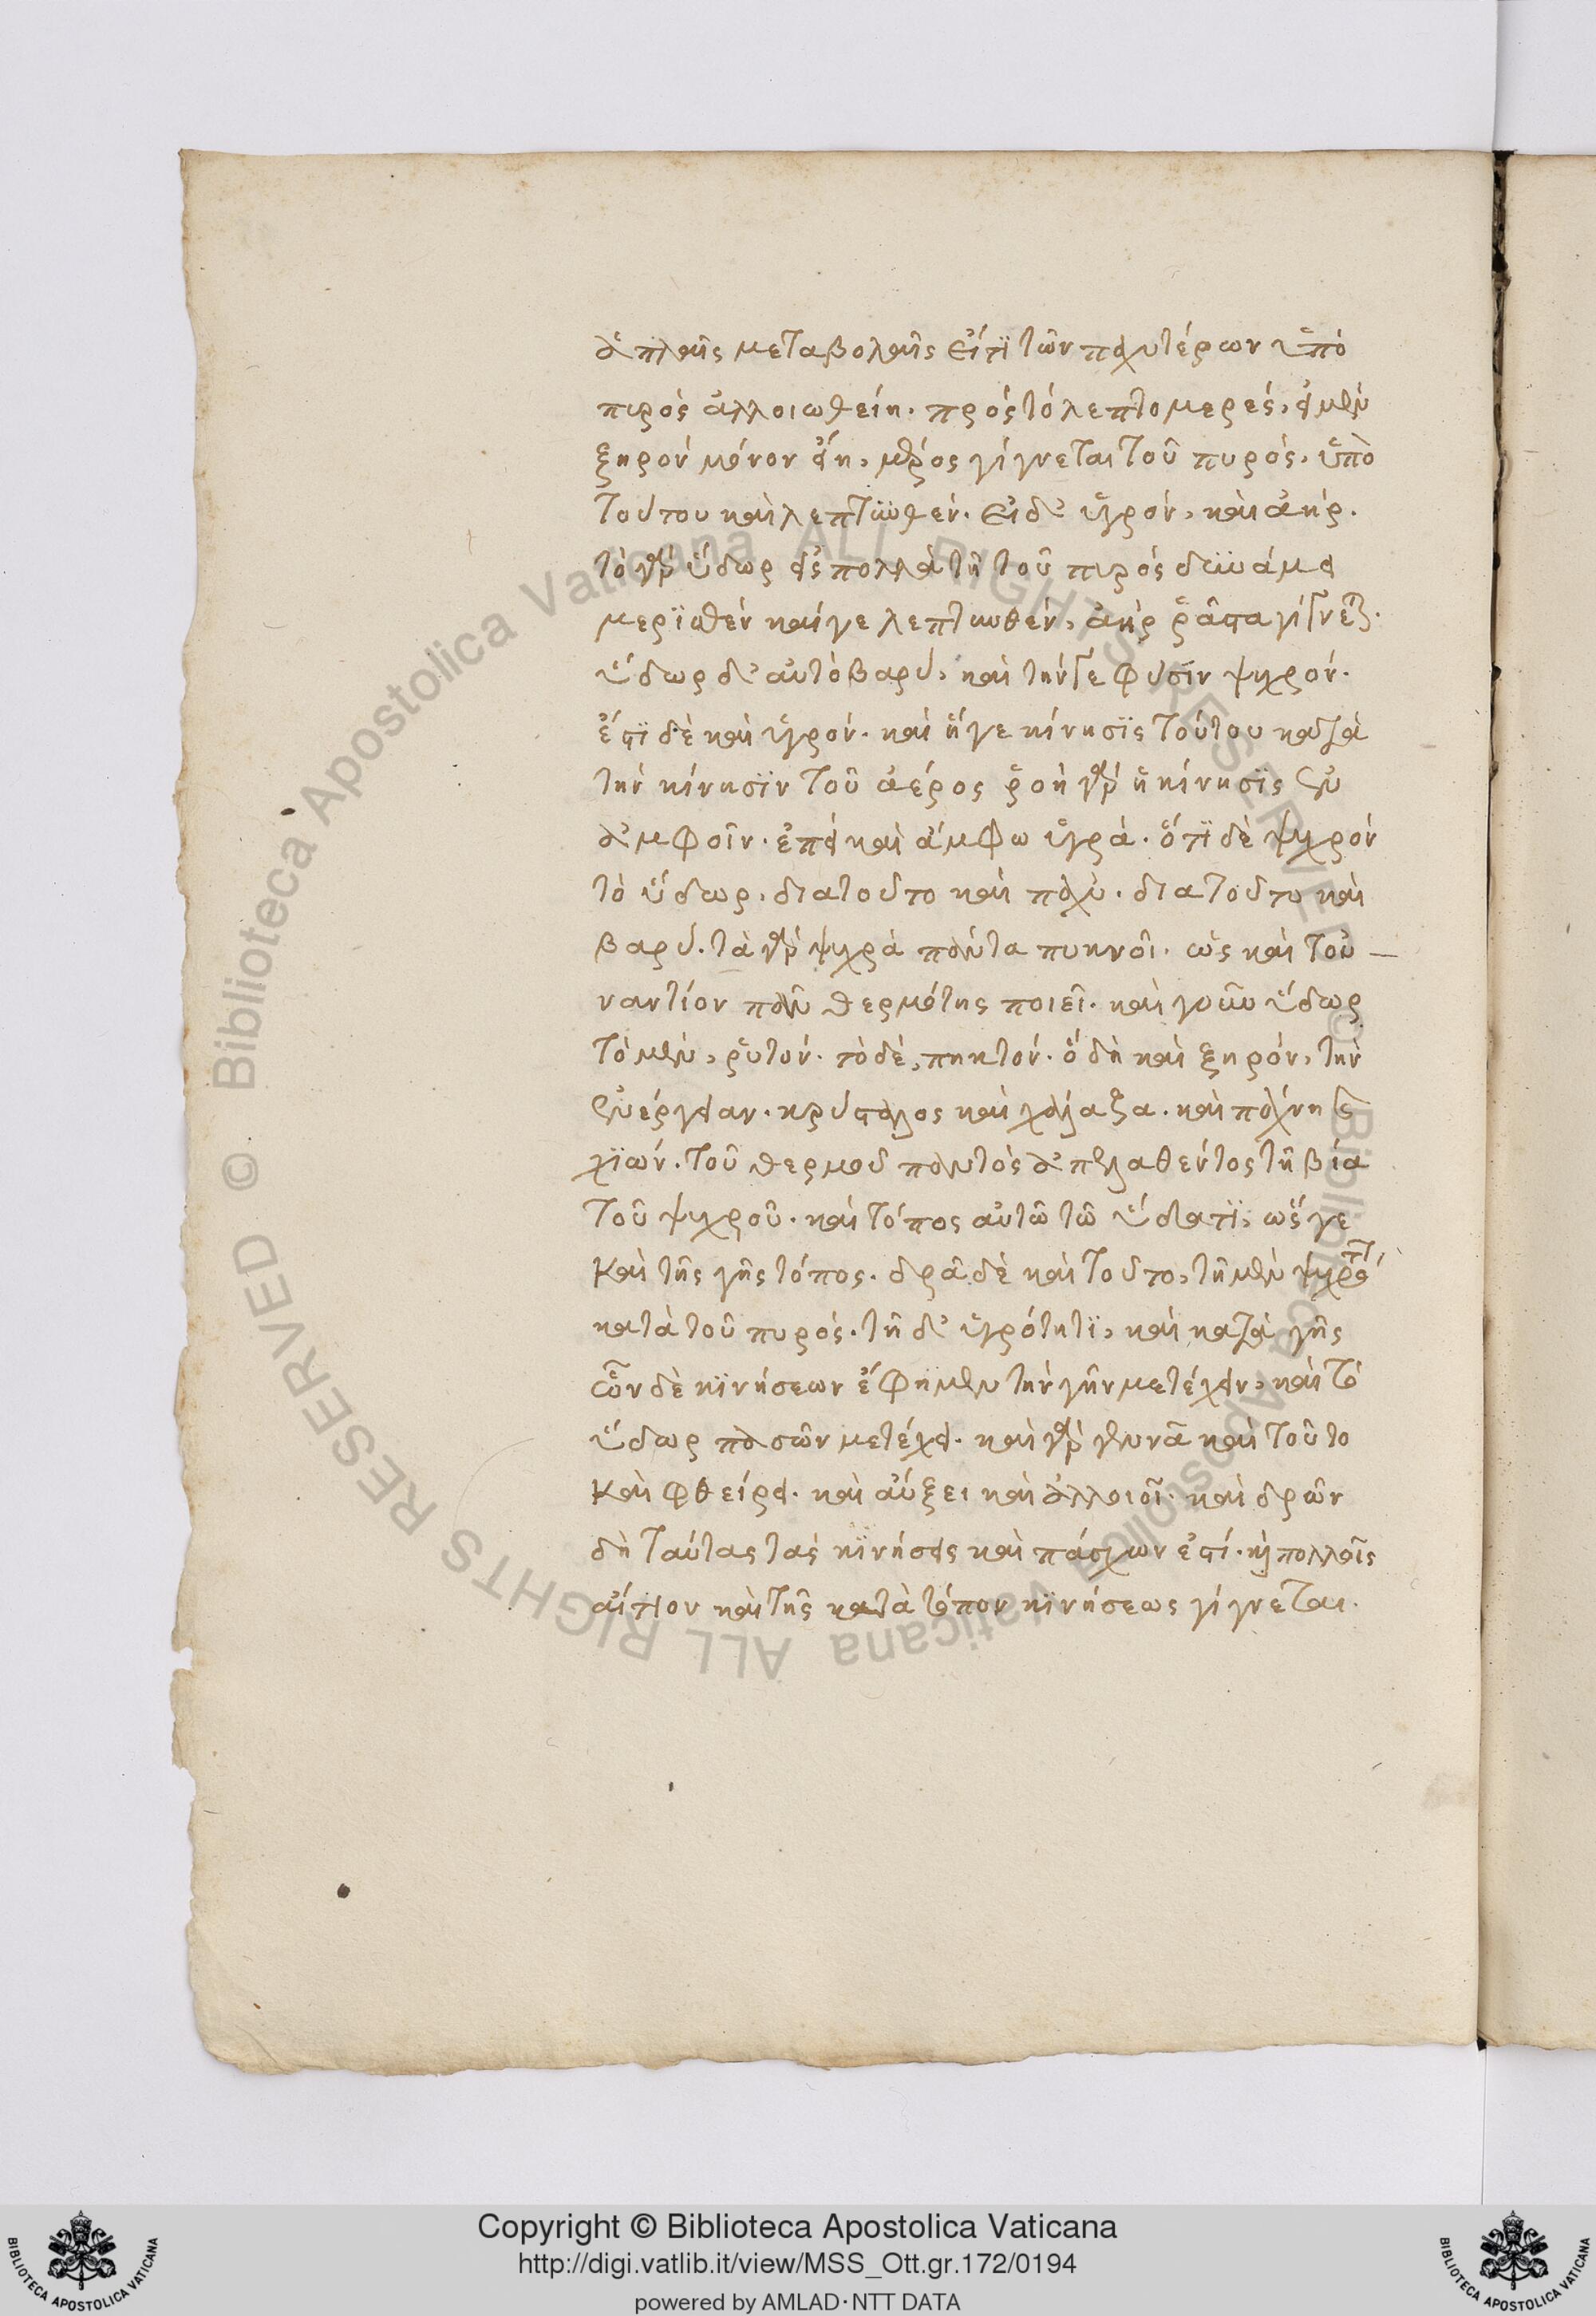 ἁπλαῖς μεταβολαῖς εἴτι τῶν παχυτέρων ὑπὸ
πυρὸς ἀλλοιωθείη. πρὸς τὸ λεπτομερές, εἰ μὲν
ξηρὸν μόνον εἴη, μέρος γίγνεται τοῦ πυρός, ὑπὸ
τούτου καὶ λεπτυνθέν. εἰ δ' ὑγρόν, καὶ ἀήρ.
τὸ γὰρ ὕδωρ εἰς πολλὰ τῇ τοῦ πυρὸς δυνάμει
μερισθὲν καί γε λεπτυνθέν, ἀὴρ ῥᾶστα γίγνεται.
ὕδωρ δ' αὐτὸ βαρύ, καὶ τήν γε φύσιν ψυχρόν.
ἔστι δὲ καὶ ὑγρόν. καὶ ἥγε κίνησις τούτου κατὰ
τὴν κίνησιν τοῦ ἀέρος ῥοὴ γὰρ ἡ κίνησις ἐν
ἀμφοῖν. ἐπεὶ καὶ ἄμφω ὑγρά. ὅτι δὲ ψυχρὸν
τὸ ὕδωρ, διατοῦτο καὶ παχύ. διατοῦτο καὶ
βαρύ. τὰ γὰρ ψυχρὰ πάντα πυκνοῖ. ὡς καὶ τοὐ
ναντίον πᾶν θερμότης ποιεῖ. καὶ γοῦν ὕδωρ
τὸ μὲν, ῥυτόν. τὸ δὲ, πηκτόν. ὃ δὴ καὶ ξηρόν, τὴν
ἐνέργειαν. κρύσταλλος καὶ χάλαζα. καὶ πάχνη καὶ
χιών. τοῦ θερμοῦ παντὸς ἀπελαθέντος τῇ βίᾳ
τοῦ ψυχροῦ. καὶ τόπος αὐτῶ τῶ ὕδατι, ὅς γε
καὶ τῆς γῆς τόπος. δρᾷ δὲ καὶ τοῦτο, τῇ μὲν ψυχρότητι,
κατὰ τοῦ πυρός. τῇ δ' ὑγρότητι, καὶ κατὰ γῆς
ὧν δὲ κινήσεων ἔφημεν τὴν γῆν μετέχειν, καὶ τὸ
ὕδωρ πασῶν μετέχει. καὶ γὰρ γεννᾷ καὶ τοῦτο
καὶ φθείρει. καὶ αὔξει καὶ ἀλλοιοῖ. καὶ δρῶν
δὴ ταύτας τὰς κινήσεις καὶ πάσχων ἐστί. καὶ πολλοῖς
αἴτιον καὶ τῆς κατὰ τόπον κινήσεως γίγνεται.
Copyright © Biblioteca Apostolica Vaticana
http://digi.vatlib.it/view/MSS_Ott.gr.172/0194
powered by AMLAD·NTT DATA
BIBLIOTECA APOSTOLICA VATICANA
BIBLIOTECA APOSTOLICA VATICANA
© Biblioteca Apostolica Vaticana ALL RIGHTS RESERVED
© Biblioteca Apostolica Vaticana ALL RIGHTS RESERVED